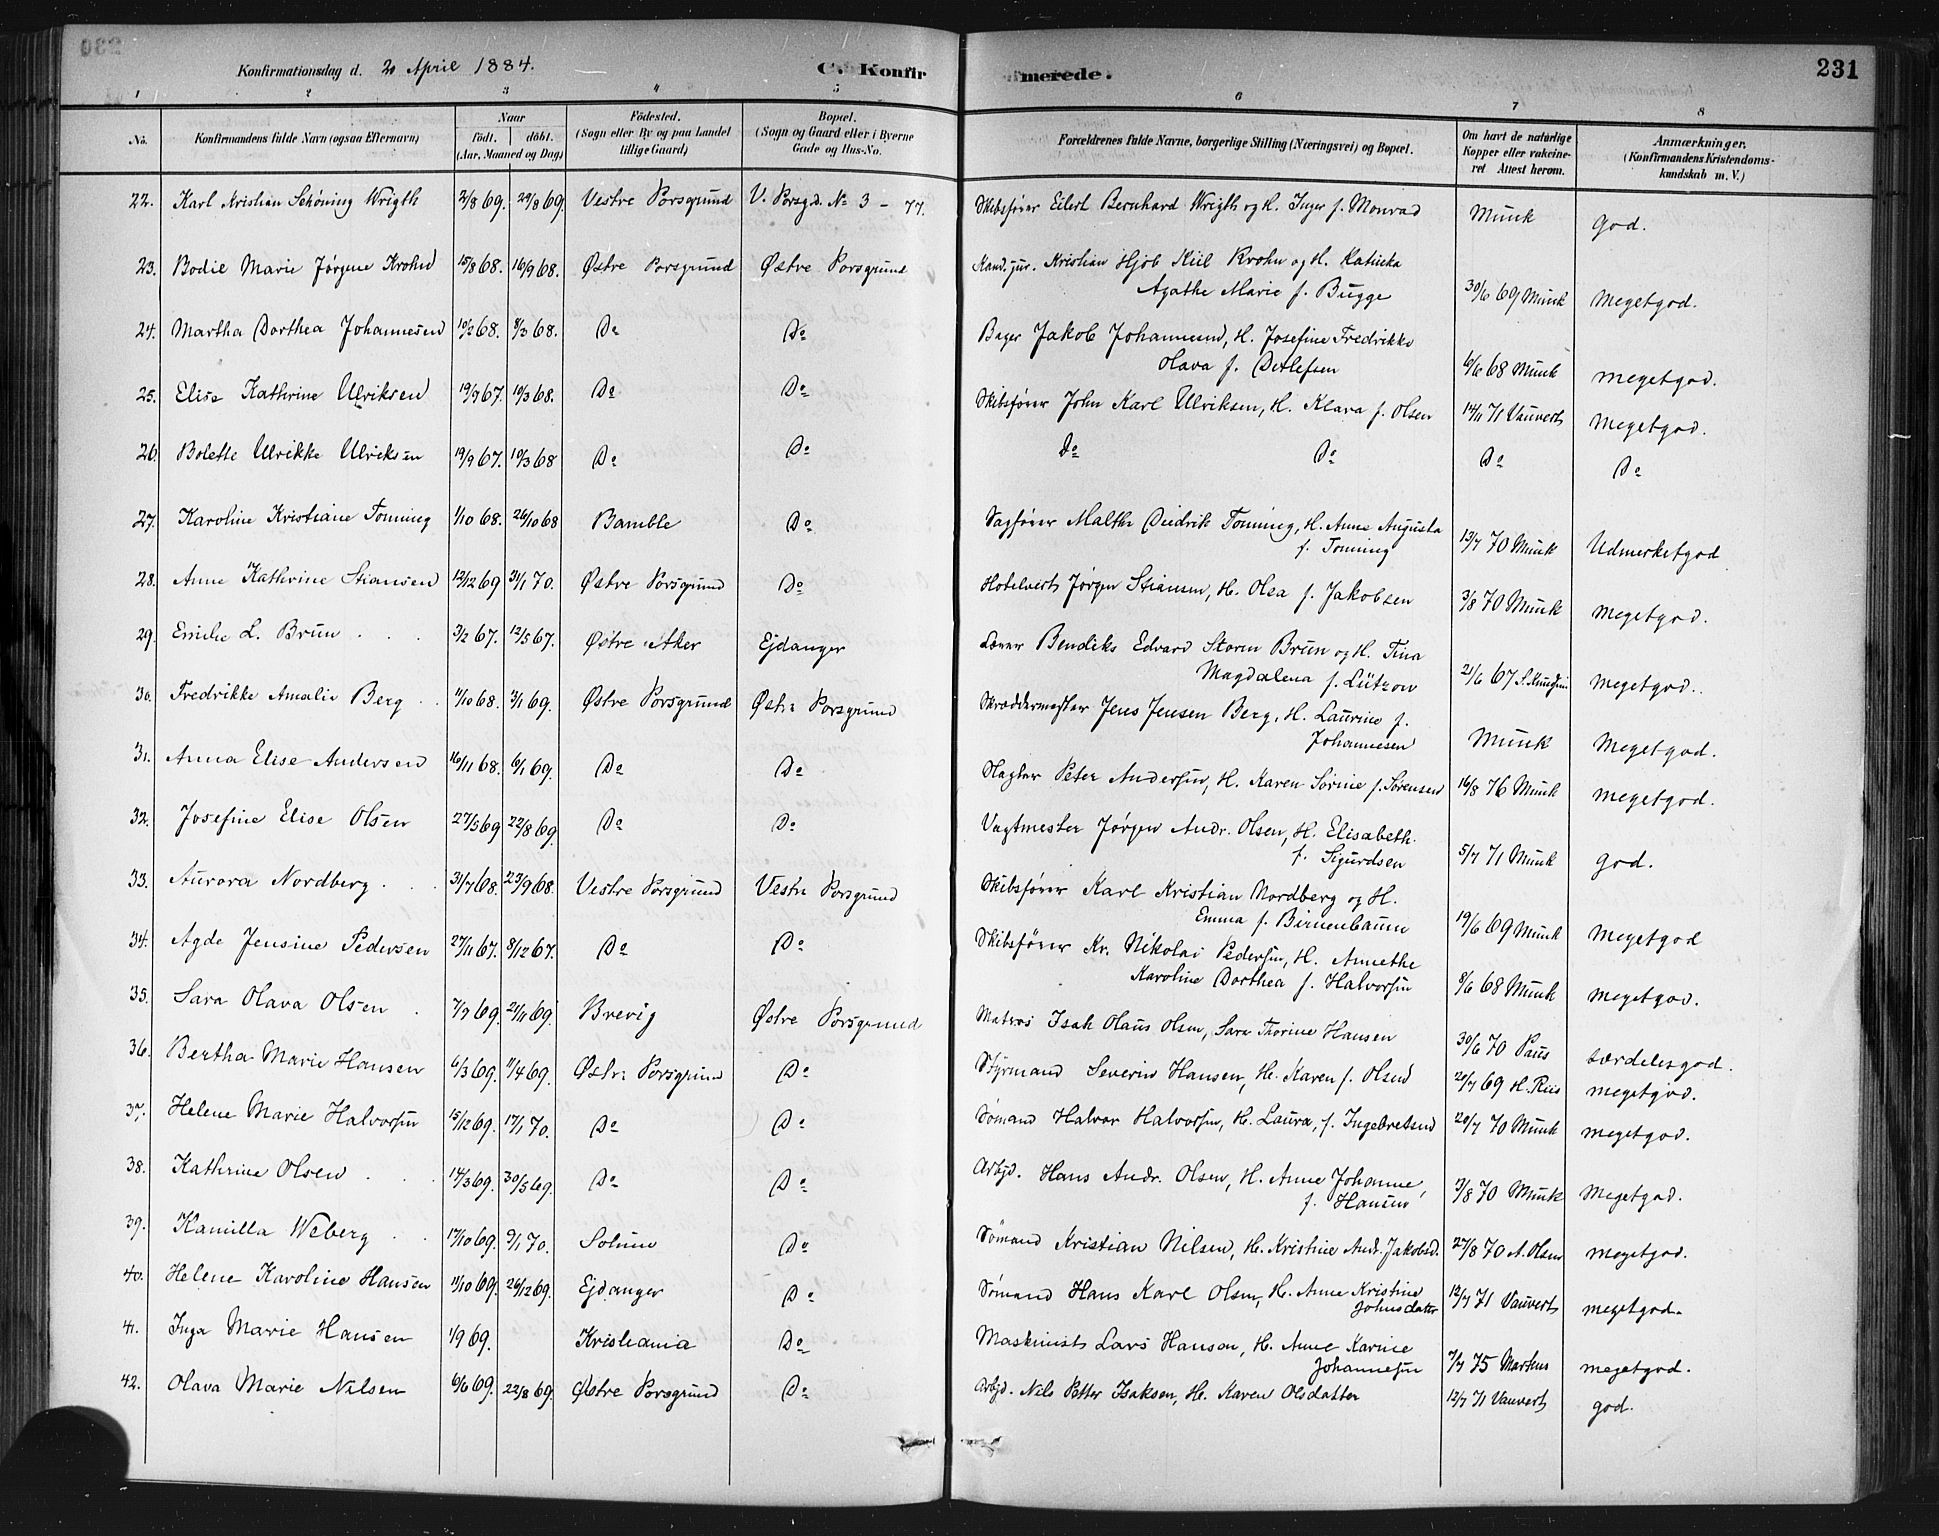 231
Konfirmationsdag d. 20 April 1884. C. Konfirmerede.
1 2 3 4 5 6 7 8
No. Konfirmandens fulde Navn (ogsaa Efternavn) Naar født. døbt. (Aar, Maaned og Dag) Fødested. (Sogn eller By og paa Landet tillige Gaard) Bopæl. (Sogn og Gaard eller i Byerne Gade og Hus-No. Forældrenes fulde Navne, borgerlige Stilling (Næringsvei) og Bopæl. Om havt de naturlige Kopper eller vakcineret Attest herom. Anmærkninger. (Konfirmandens Kristendomskundskab m. V.)
22. Karl Kristian Schøning Wrigth 2/8 69. 29/8 69. Vestre Porsgrund V. Porsgd. No 3 - 77. Skibsfører Eilert Bernhard Wrigth og H. Inger f. Monrad Munk god.
23. Bodil Marie Jørgene Krohn 15/8 68. 16/9 68. Østre Porsgrund Østre Porsgrund Kand. jur. Kristian Hjob Kiil Krohn og H. Katinka
Agathe Marie f. Bugge 30/6 69 Munk Megetgod.
24. Martha Dorthea Johannesen 10/2 68. 8/3 68. Do Do Bager Jakob Johannesen, H. Josefine Fredrikke
Olava f. Detlefsen 6/6 68 Munk megetgod.
25. Elise Kathrine Ulriksen 19/9 67. 10/3 68. Do Do Skibsfører John Karl Ulriksen, H. Klara f. Olsen 14/11 71 Vauverts Megetgod.
26. Bolette Ulrikke Ulriksen 19/9 67. 10/3 68 Do Do Do Do Do Do
27. Karoline Kristiane Tonning 1/10 68. 26/10 68 Bamble Do Sagfører Malthe Diedrik Tonning, H. Anne Augusta
f. Tonning 13/7 70 Munk Udmerketgod
28. Anne Kathrine Stiansen 12/12 69 31/1 70. Østre Porsgrund Do Hotelvert Jørgen Stiansen, H. Olea f. Jakobsen 3/8 70 Munk megetgod.
29. Emilie L. Brun 3/2 67. 12/5 67. Østre Aker Ejdanger Lærer Bendiks Edvard Storm Brun og H. Tina
Magdalena f. Lützow 21/6 67 Megetgod.
30. Fredrikke Amalie Berg 11/10 68. 3/1 69. Østre Porsgrund Østre Porsgrund Skræddermester Jens Jensen Berg, H. Laurine f.
Johannesen Munk Megetgod.
31. Anna Elise Andersen 16/11 68. 6/1 69. Do Do Peter Andersen, H. Karen Sørine f. Sørensen 16/8 76 Munk megetgod.
32. Josefine Elise Olsen 27/5 69 22/8 69. Do Do Vagtmester Jørgen Andr. Olsen, H. Elisabeth
f. Sigurdsen 5/7 71 Munk god.
33. Aurora Nordberg 31/7 68. 23/9 68. Vestre Porsgrund Vestre Porsgrund Skibsfører Karl Kristian Nordberg og H.
Emma f. Birnenbaum 19/6 69 Munk Megetgod
34. Agde Jensine Pedersen 27/11 67. 8/12 67. Do Do Skibsfører Kr. Nikolai Pedersen, H. Annethe
Karoline Dorthea f. Halvorsen 8/6 68 Munk megetgod.
35. Sara Olava Olsen 7/9 69. 21/11 69. Brevig Østre Porsgrund Matros Isak Olaus Olsen, Sara Thorine Hansen 30/6 70 Paus særdelesgod.
36. Bertha Marie Hansen 6/3 69. 11/4 69. Østre Porsgrund Do Styrmand Severin Hansen, H. Karen f. Olsen 20/7 69 H. Riis megetgod.
37. Helene Marie Halvorsen 15/12 69. 17/1 70. Do Do Sømand Halvor Halvorsen, H. Laura, f. Ingebretsen 20/7 70 Munk megetgod.
38. Kathrine Olsen 14/3 69. 30/5 69. Do Do Arbjd. Hans Andr. Olsen, H. Anne Johanne,
f. Hansen 9/8 70 Munk Megetgod.
39. Kamilla Weberg 17/10 69. 9/1 70. Solum Do Sømand Kristian Nilsen, H. Kristine Andr. Jakobsd. 27/8 70 A. Olsen megetgod.
40. Helene Karoline Hansen 11/10 69. 26/12 69. Ejdanger Do Sømand Hans Karl Olsen, H. Anne Kristine
Johnsdatter 12/7 71 Vauverts megetgod.
41. Inga Marie Hansen 1/9 69. Kristiania Do Maskinist Lars Hanson, H. Anne Karine
Johannesen 9/7 75 megetgod.
42. Olava Marie Nilsen 6/6 69. 22/8 69. Østre Porsgrund Do Arbjd. Nils Petter Isaksen, H. Karen Olsdatter 12/7 71 Vauverts god.